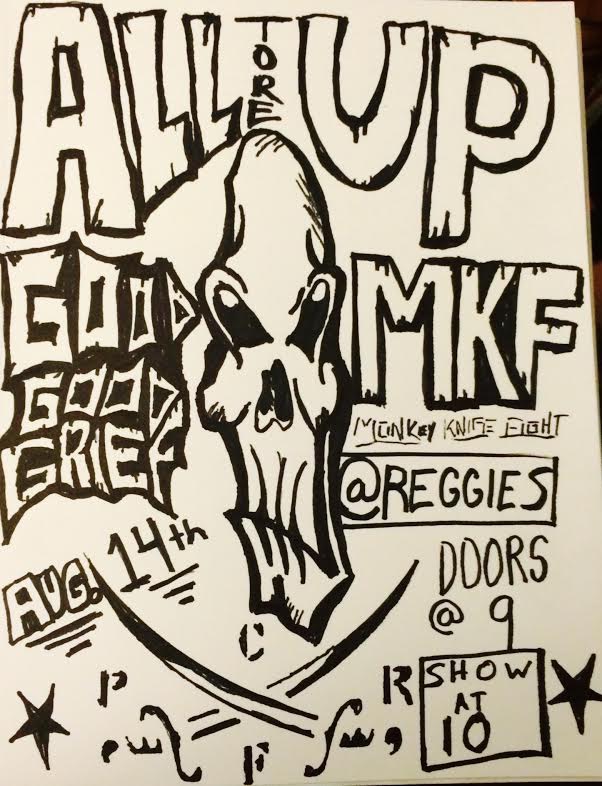 ALL TORE UP
GOOD
GOOD
GRIEF
MKF
MONKEY KNIFE FIGHT
@REGGIES
AUG. 14th
DOORS
@ 9
SHOW
AT
10
C
P R
F